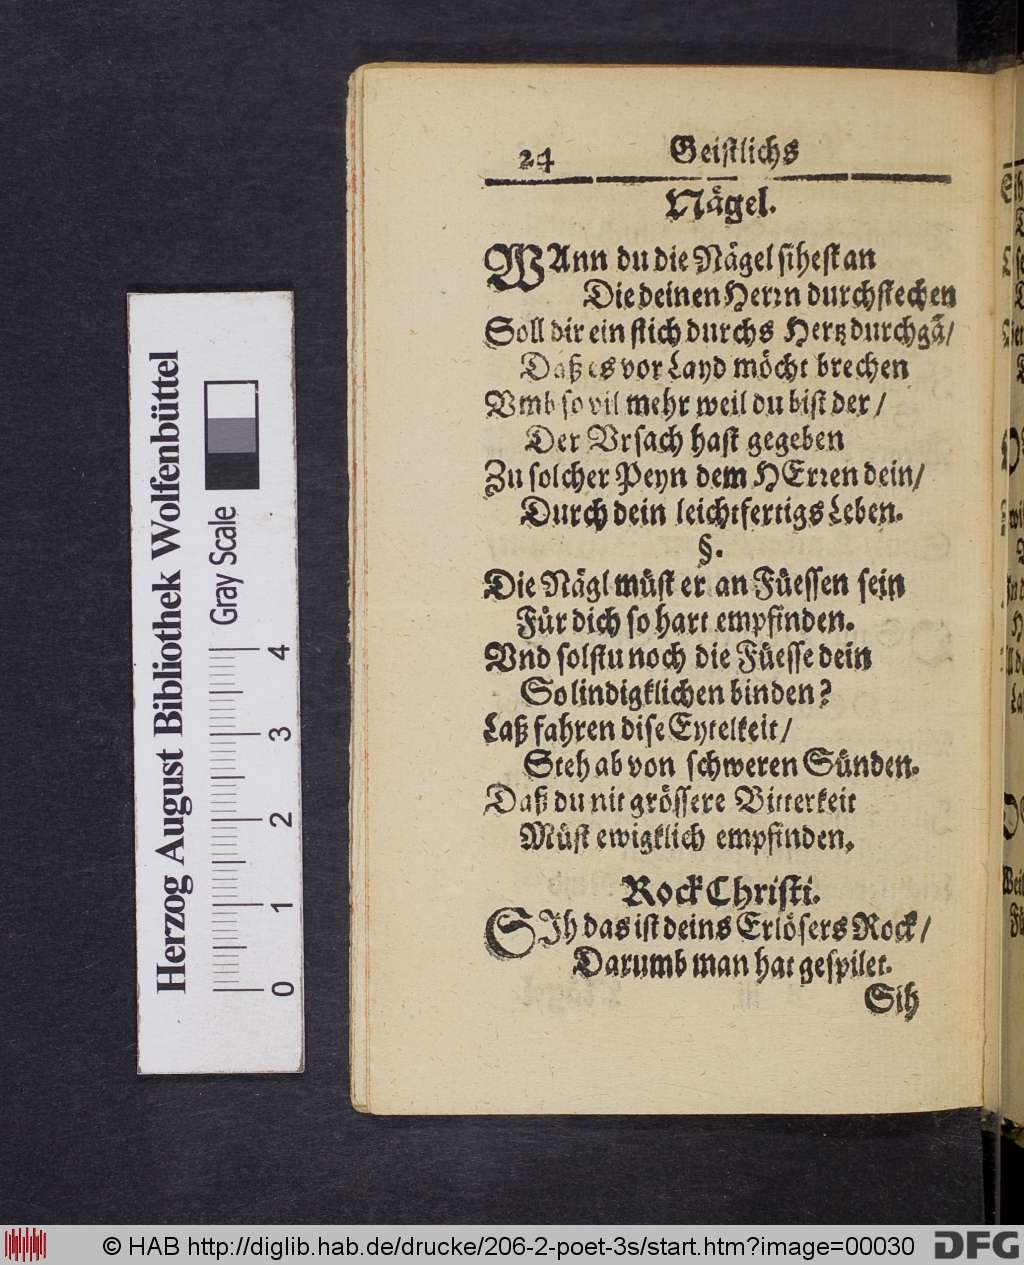 24 Geistlichs
Nägel.
WAnn du die Nägel sihest an
Die deinen Herrn durchstechen
Soll dir ein stich durchs Hertz durchgā/
Daß es vor Layd möcht brechen
Vmb so vil mehr weil du bist der/
Der Vrsach hast gegeben
Zu solcher Peyn dem HErren dein/
Durch dein leichtfertigs Leben.
§.
Die Nägl müst er an Füessen sein
Für dich so hart empfinden.
Vnd solstu noch die Füesse dein
So lindigklichen binden?
Laß fahren dise Eytelkeit/
Steh ab von schweren Sünden.
Daß du nit grössere Bitterkeit
Müst ewigklich empfinden.
Rock Christi.
SIh das ist deins Erlösers Rock/
Darumb man hat gespilet.
Sih
Herzog August Bibliothek Wolfenbüttel
Gray Scale
0 1 2 3 4
© HAB http://diglib.hab.de/drucke/206-2-poet-3s/start.htm?image=00030
DFG